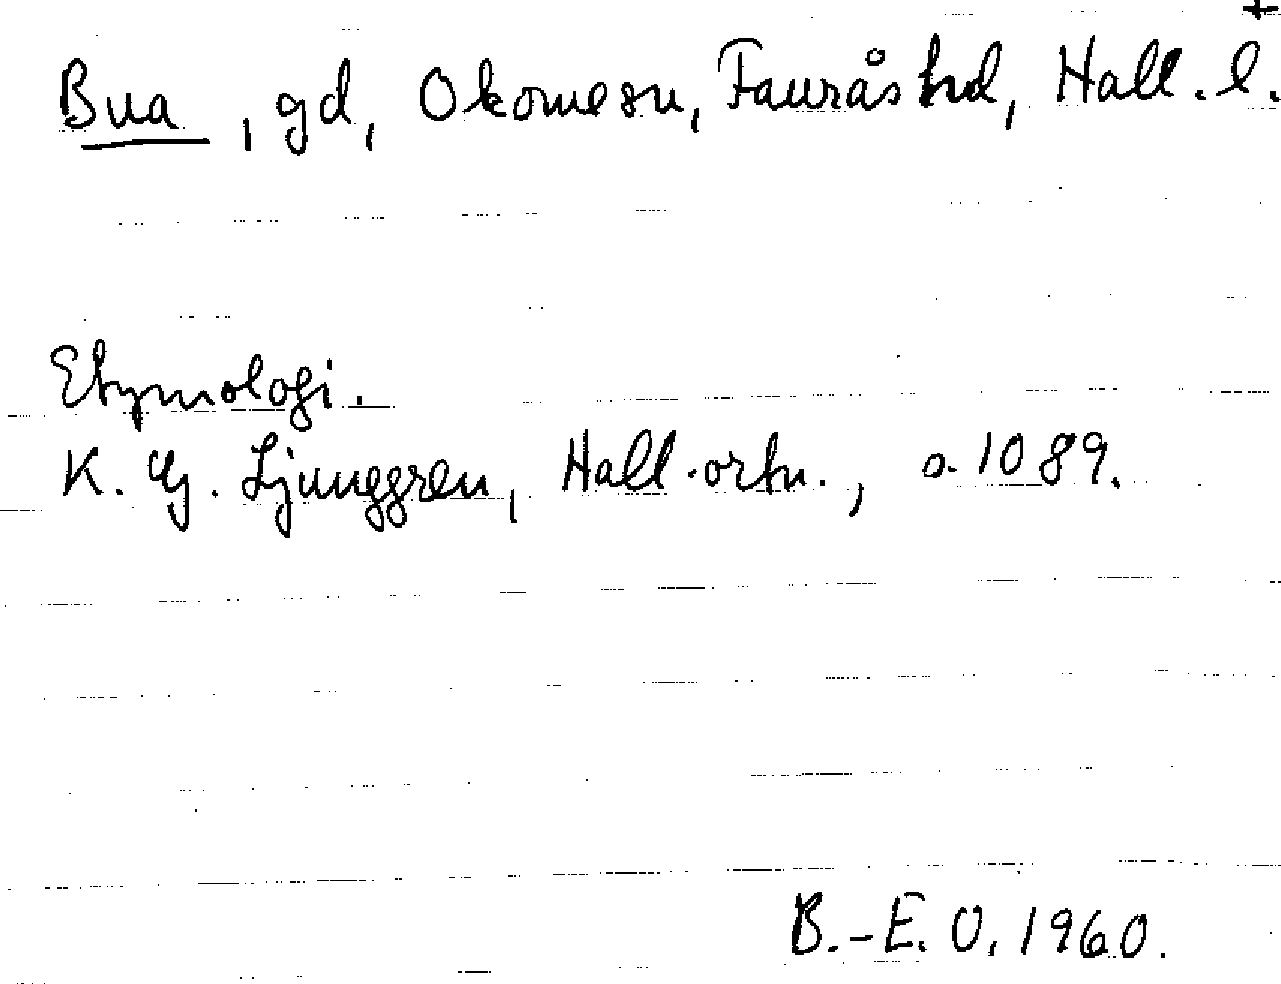 +
Bua, gd, Okome sn, Faurås hd, Hall. l.
Etymologi.
K. Gj. Ljunggren, Hall. ortn., o. 1089.
B.-E. O. 1960.